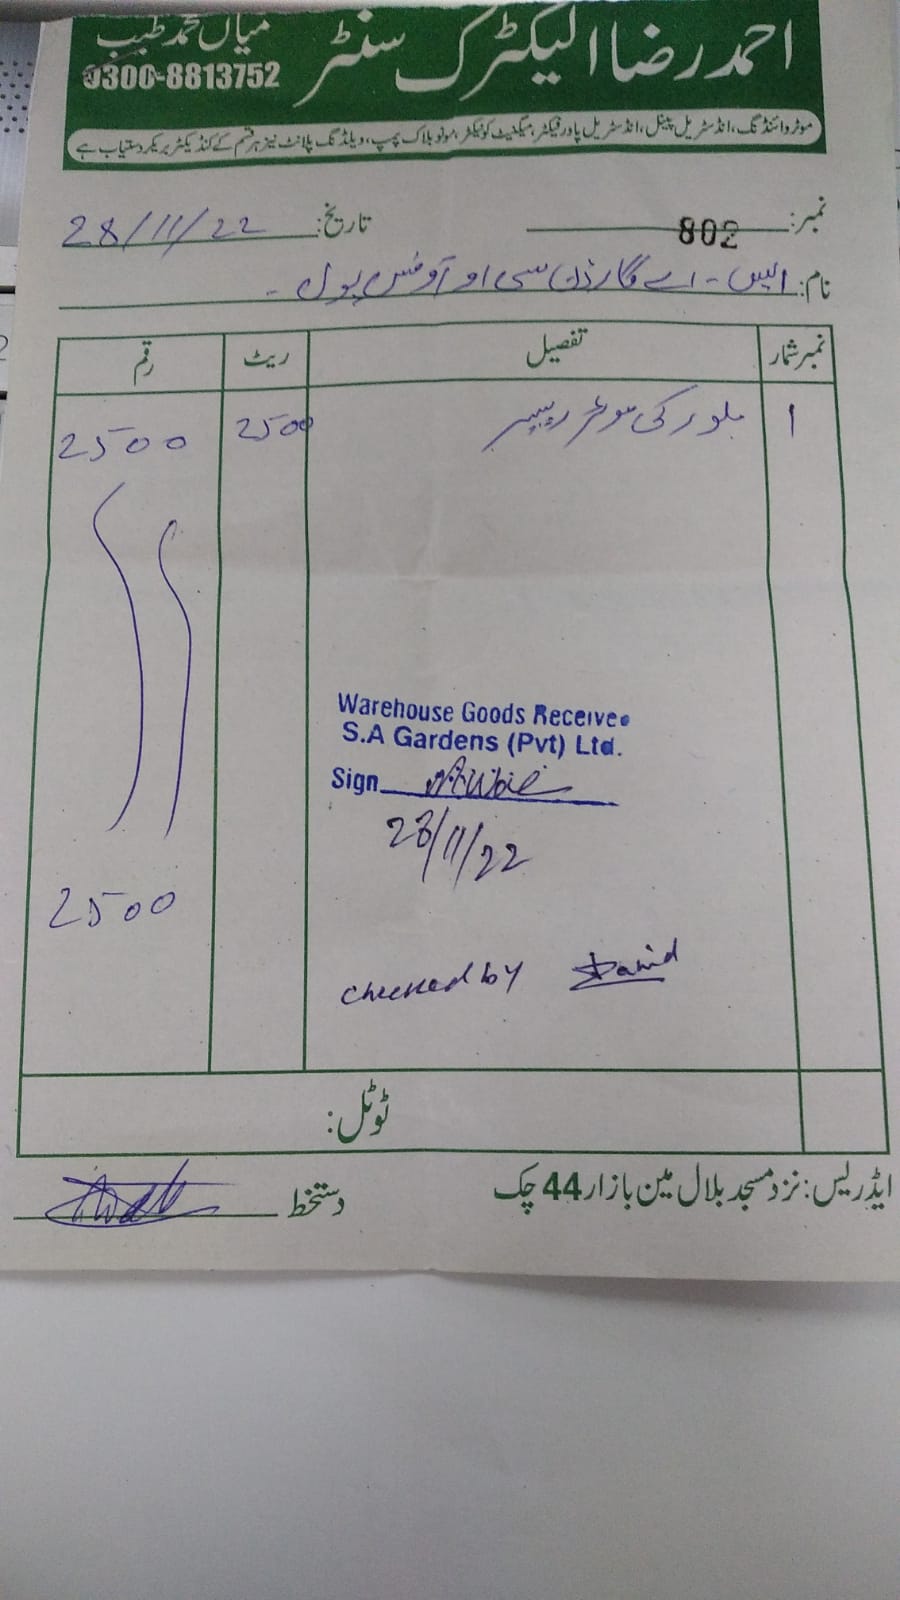 احمد رضا الیکٹرک سنٹر
میاں محمد طیب
0300-8813752
موٹر وائنڈنگ، انڈسٹریل پینل، انڈسٹریل پاور فیکٹر، میگنیٹ کونیکٹر، مونو بلاک پمپ، ویلڈنگ پلانٹ نیز ہر قسم کے کنڈیکٹر بریکر دستیاب ہے
نمبر: 802 تاریخ: 28/11/22
نام: ایس - اے گارڈن سی او آفس پول -
نمبر شمار تفصیل ریٹ رقم
1 بلور کی موٹر ریپیر 2500 2500
Warehouse Goods Receive
S.A Gardens (Pvt) Ltd.
Sign
28/11/22
2500
checked by
ٹوٹل:
ایڈریس: نزد مسجد بلال مین بازار 44 چک دستخط